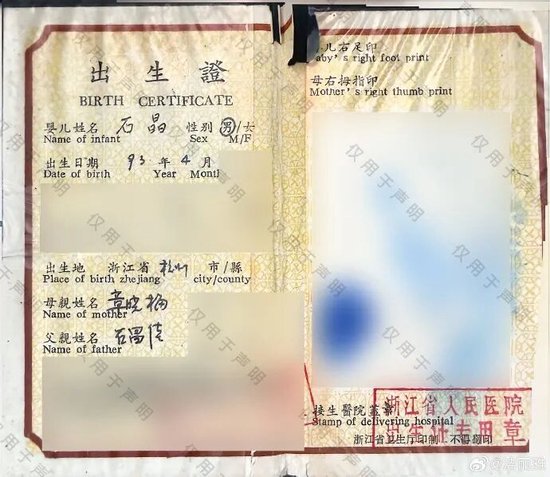 出生證
BIRTH CERTIFICATE
嬰儿姓名 石晶 性别 男/女
Name of infant Sex M/F
出生日期 93 年 4 月
Date of birth Year Month
出生地 浙江省 杭州 市/縣
Place of birth zhejiang city/county
母親姓名 章
Name of mother
父親姓名 石
Name of father
儿右足印
aby's right foot print
母右拇指印
Mother's right thumb print
接生醫院蓋章
Stamp of delivering hospital
浙江省卫生厅印制 不得翻印
浙江省人民医院
出生证专用章
仅用于声明